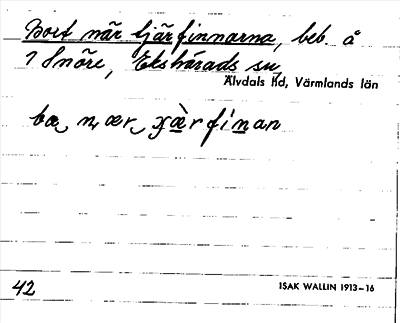 Bort när tjärfinnarna, beb. å
1 Snöre, Ekshärads sn,
Älvdals hd, Värmlands län
42
ISAK WALLIN 1913-16